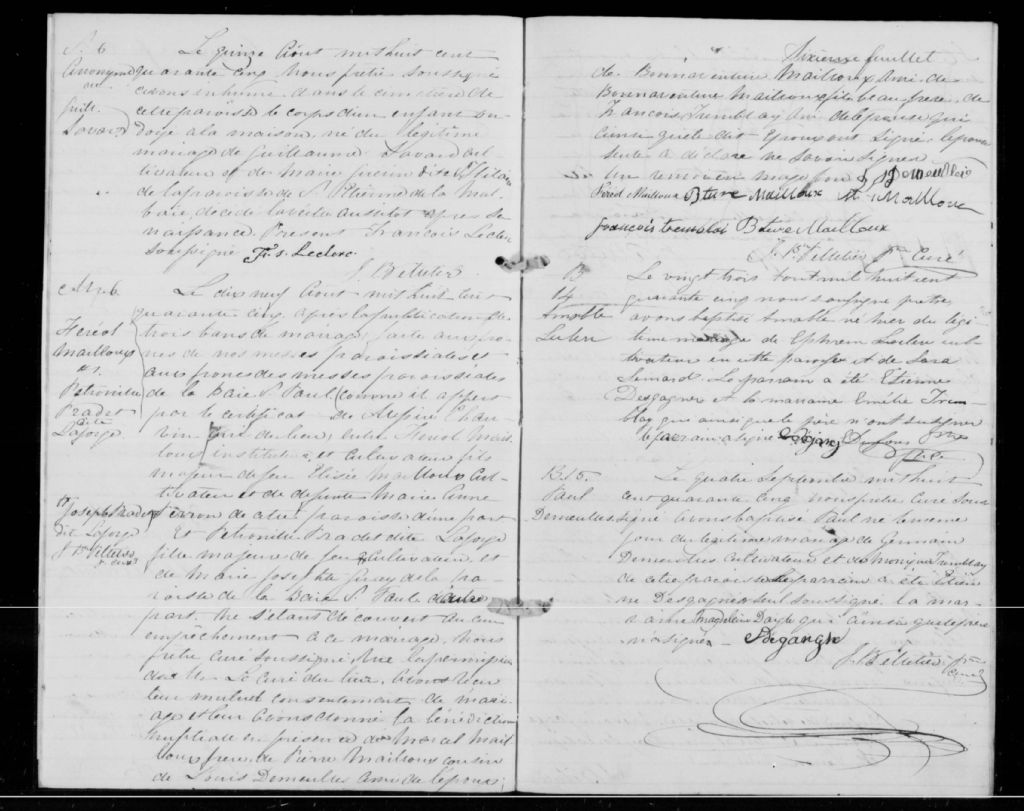 S. 6
Anonyme
Guill.
Savard
Le quinze Août mil huit cent
quarante cinq Nous prêtre soussigné
avons inhumé dans le cimetière de
cette paroisse le corps d'un enfant on-
doyé à la maison, né du légitime
mariage de Guillaume Savard cul-
tivateur et de Marie
de la paroisse de St Etienne de la Mal-
baie, décédé aussitôt après sa
naissance. Présent François Leclerc
soussigné Fr. s. Leclerc
J. B. Pelletier
M. 6.
Feréol
Mailloux
&
Petronille
Pradet
dite
Laforge
Le dix neuf Août mil huit cent
quarante cinq après la publication de
trois bans de mariage faite aux prô-
nes de nos messes paroissiales et
aux prônes des messes paroissiales
de la Baie St Paul comme il appert
par le certificat de
curé du lieu, entre Feréol Mail-
loux instituteur et cultivateur fils
majeur de feu Elisée Mailloux cul-
tivateur et de défunte Marie Anne
de cette paroisse d'une part
Joseph Pradet
dit Laforge
J. Bte Pelletier
Ptre curé
Et Petronille Pradet dite Laforge
fille majeure de feu cultivateur et
de Marie Josephte de la pa-
roisse de la Baie St Paul d'autre
part. Ne s'étant découvert aucun
empêchement à ce mariage, Nous
prêtre curé soussigné, avec la permission
de Mr. Le curé du lieu, avons reçu
leur mutuel consentement de maria-
ge et leur avons donné la bénédiction
nuptiale en présence de Marcel Mail-
loux frère, de Pierre Mailloux cousin
de Louis Demeules ami de l'époux;
Sixième feuillet
de Bonnaventure Mailloux ami de
Bonnaventure Mailloux fils beau frère, de
François Tremblay ami de l'épouse qui
ainsi que le dit Epoux ont signé. L'épouse
a déclaré ne savoir signer
Un renvoi en marge bon L. Demeules
Feréol Mailloux B ture Mailloux M. Mailloux
françois tremblai B ture Mailloux
J. Bt Pelletier Ptre Curé
B
14
Amable
Leclerc
Le vingt trois août mil huit cent
quarante cinq nous soussigné prêtre
avons baptisé Amable né hier du légi-
time mariage de Ephrem Leclerc cul-
tivateur en cette paroisse et de Sara
Simard. Le parrain a été Etienne
Desgagnés et la marraine Emélie Trem-
blay qui ainsi que le père n'ont su signer
le parrain a signé
B. 15.
Paul
Demeules
Le quatre Septembre mil huit
cent quarante cinq nous prêtre curé sous-
signé avons baptisé Paul né le même
jour du légitime mariage de Germain
Demeules cultivateur et de Monique Tremblay
de cette paroisse. Le parrain a été Etien-
ne Desgagnés seul soussigné. la mar-
raine Magdelein Dayle qui ainsi que le père
n'a signé.
J. B Pelletier Ptre
curé